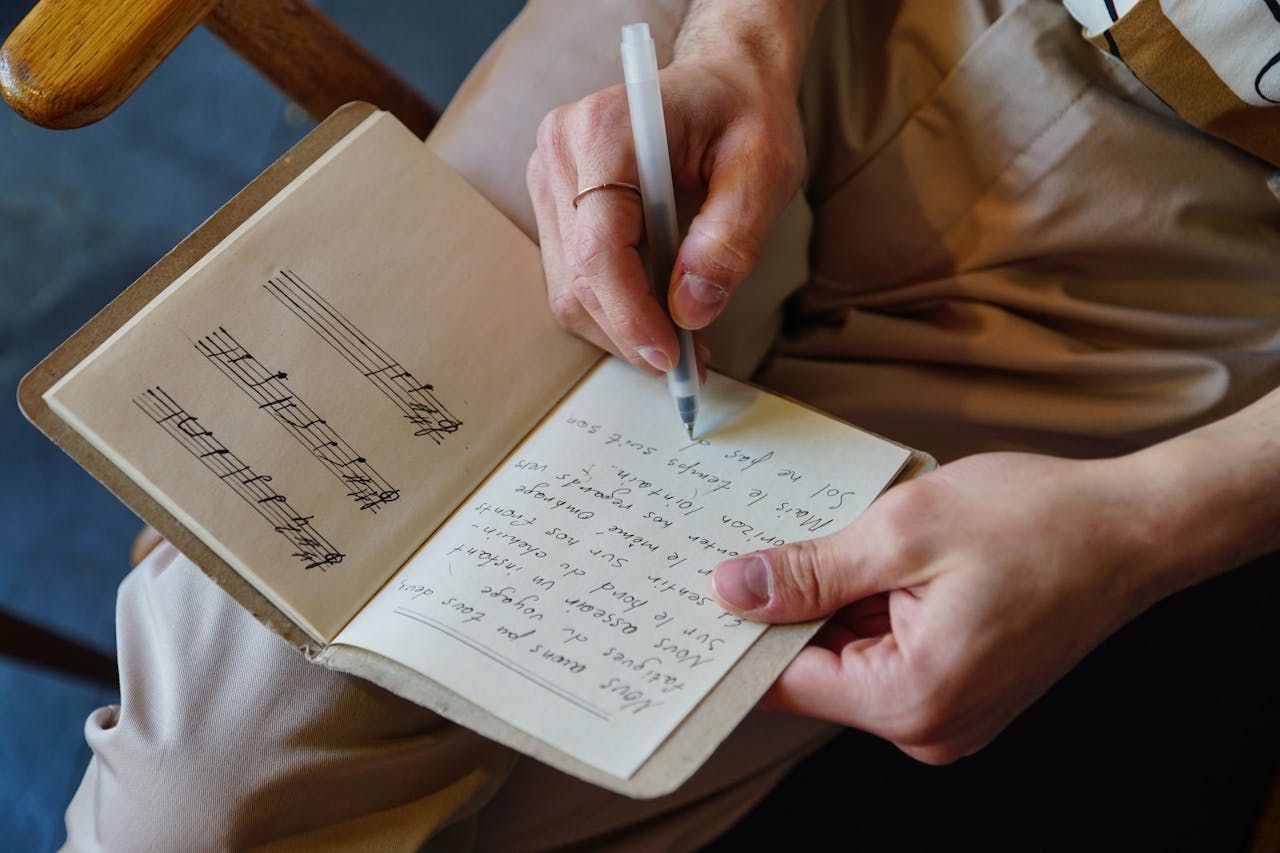 Nous avons pu tous deux,
fatigués du voyage
Nous asseoir un instant
Sur le bord du chemin-
sentir sur nos fronts
le même ombrage
nos regards vers
lointain.
Mais le temps suit son
Sol ne pas